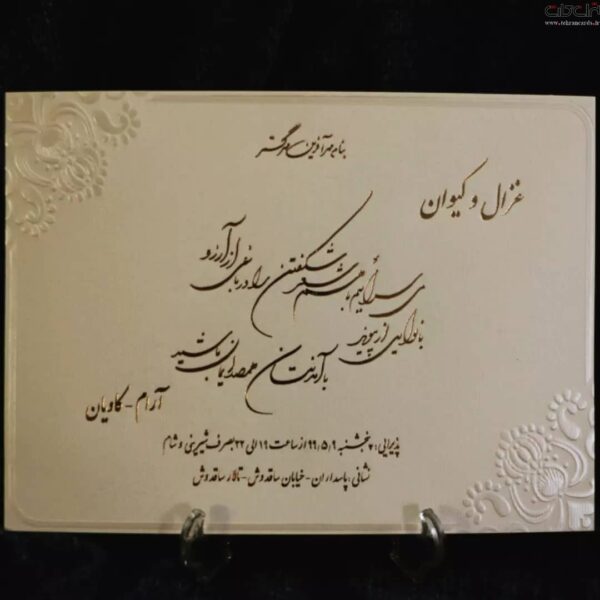 تهران کارت
www.tehrancards.ir
بنام مهرآفرین مهرگستر
غزال و کیوان
می سرائیم باهم شعر شکفتن را در باغی از آرزو
با نوایی از پیوند
با آمدنتان همصدایمان باشید
آرام - کاویان
پذیرایی: پنجشنبه ۹۹،۵،۹ از ساعت ۱۹ الی ۲۲ بصرف شیرینی و شام
نشانی: پاسداران - خیابان ساقدوش - تالار ساقدوش